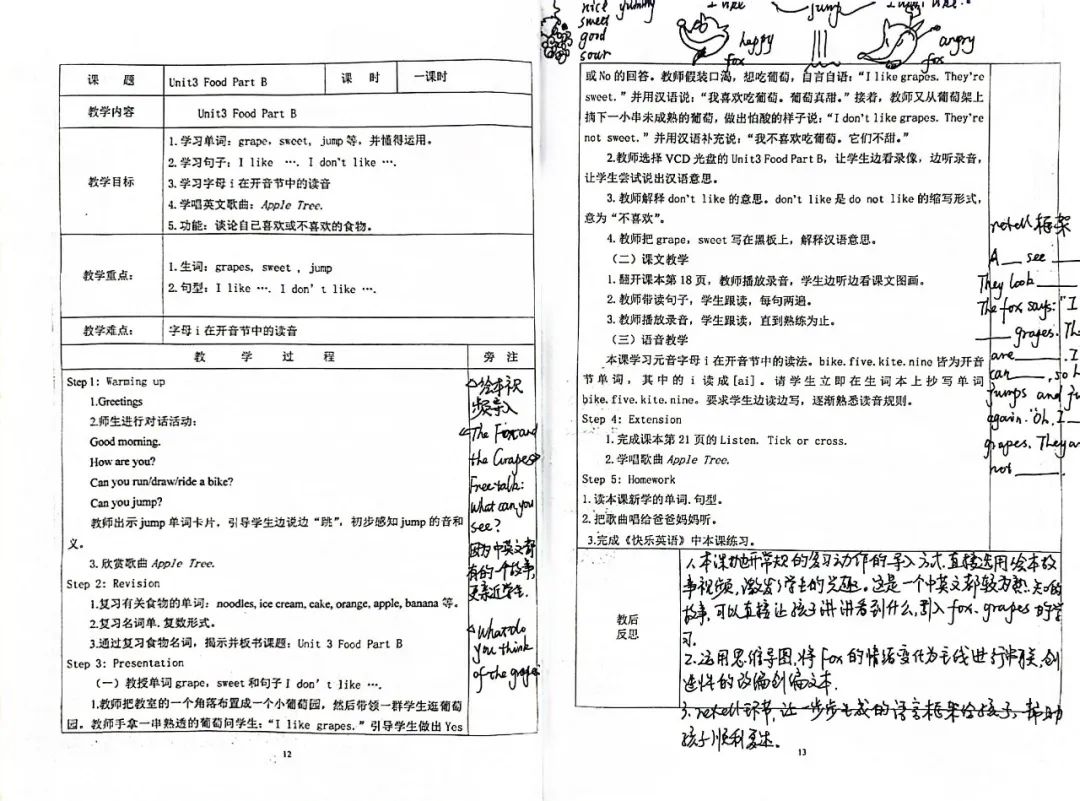 课 题 Unit3 Food Part B 课 时 一课时
教学内容 Unit3 Food Part B
教学目标
1.学习单词: grape, sweet, jump等, 并懂得运用。
2.学习句子: I like …. I don't like ….
3.学习字母 i 在开音节中的读音
4.学唱英文歌曲: Apple Tree.
5.功能: 谈论自己喜欢或不喜欢的食物。
教学重点:
1.生词: grapes, sweet , jump
2.句型: I like …. I don't like ….
教学难点: 字母 i 在开音节中的读音
教 学 过 程 旁 注
Step 1: Warming up
1.Greetings
2.师生进行对话活动:
Good morning.
How are you?
Can you run/draw/ride a bike?
Can you jump?
教师出示 jump 单词卡片, 引导学生边说边“跳”, 初步感知 jump 的音和
义。
3.欣赏歌曲 Apple Tree.
Step 2: Revision
1.复习有关食物的单词: noodles, ice cream, cake, orange, apple, banana 等。
2.复习名词单.复数形式。
3.通过复习食物名词, 揭示并板书课题: Unit 3 Food Part B
Step 3: Presentation
(一) 教授单词 grape, sweet 和句子 I don't like ….
1.教师把教室的一个角落布置成一个小葡萄园, 然后带领一群学生逛葡萄
园。教师手拿一串熟透的葡萄问学生: “I like grapes.” 引导学生做出 Yes
绘本视
频导入
The Fox and
the Grapes
Free talk:
What can you
see?
因为中英文都
有的一个故事,
更亲近学生.
What do
you think
of the grapes
12
nice yummy
sweet
good
sour
jump
happy
fox
angry
fox
或 No 的回答。教师假装口渴, 想吃葡萄, 自言自语: “I like grapes. They're
sweet.” 并用汉语说: “我喜欢吃葡萄。葡萄真甜。” 接着, 教师又从葡萄架上
摘下一小串未成熟的葡萄, 做出怕酸的样子说: “I don't like grapes. They're
not sweet.” 并用汉语补充说: “我不喜欢吃葡萄。它们不甜。”
2.教师选择 VCD 光盘的 Unit3 Food Part B, 让学生边看录像, 边听录音,
让学生尝试说出汉语意思。
3. 教师解释 don't like 的意思。don't like 是 do not like 的缩写形式,
意为“不喜欢”。
4. 教师把 grape, sweet 写在黑板上, 解释汉语意思。
(二) 课文教学
1.翻开课本第 18 页, 教师播放录音, 学生边听边看课文图画。
2. 教师带读句子, 学生跟读, 每句两遍。
3. 教师播放录音, 学生跟读, 直到熟练为止。
(三) 语音教学
本课学习元音字母 i 在开音节中的读法。bike.five.kite.nine 皆为开音
节单词, 其中的 i 读成[ai]。请学生立即在生词本上抄写单词
bike.five.kite.nine。要求学生边读边写, 逐渐熟悉读音规则。
Step 4: Extension
1.完成课本第 21 页的 Listen. Tick or cross.
2.学唱歌曲 Apple Tree.
Step 5: Homework
1.读本课新学的单词.句型。
2.把歌曲唱给爸爸妈妈听。
3.完成《快乐英语》中本课练习。
retell框架
A __ see __
They look __
The fox says: "I
__ grapes. The
are __. I
can __, so h
jumps and ju
again. "Oh, I __
grapes. They ar
not __.
教后
反思
1.本课抛开常规的复习动作的导入方式, 直接选用绘本故
事视频, 激发了学生的兴趣。这是一个中英文都较为熟知的
故事, 可以直接让孩子讲讲看到什么, 引入fox. grapes的学
习.
2.运用思维导图, 将Fox的情绪变化为主线进行串联, 创
造性的改编创编文本.
3.retell环节, 让一步步生成的语言框架给孩子, 帮助
孩子顺利复述。
13